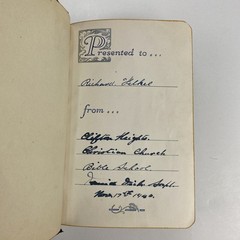 Presented to...
Richard
from...
Clifton Heights
Christian Church
Bible School
Nov. 17th 1940.